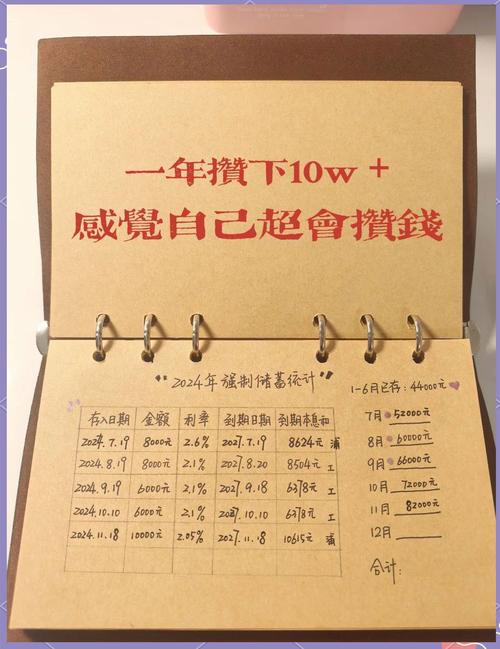 一年攢下10w+
感覺自己超會攢錢
"2024年强制储蓄统计"
存入日期 金额 利率 到期日期 到期本息和
2024.7.19 8000元 2.6% 2027.7.19 8624元 浦
2024.8.19 8000元 2.1% 2027.8.20 8504元 工
2024.9.19 6000元 2.1% 2027.9.18 6378元 工
2024.10.10 6000元 2.1% 2027.10.10 6378元 工
2024.11.18 10000元 2.05% 2027.11.18 10615元 浦
1-6月已存:44000元
7月 52000元
8月 60000元
9月 66000元
10月 72000元
11月 82000元
12月
合计: